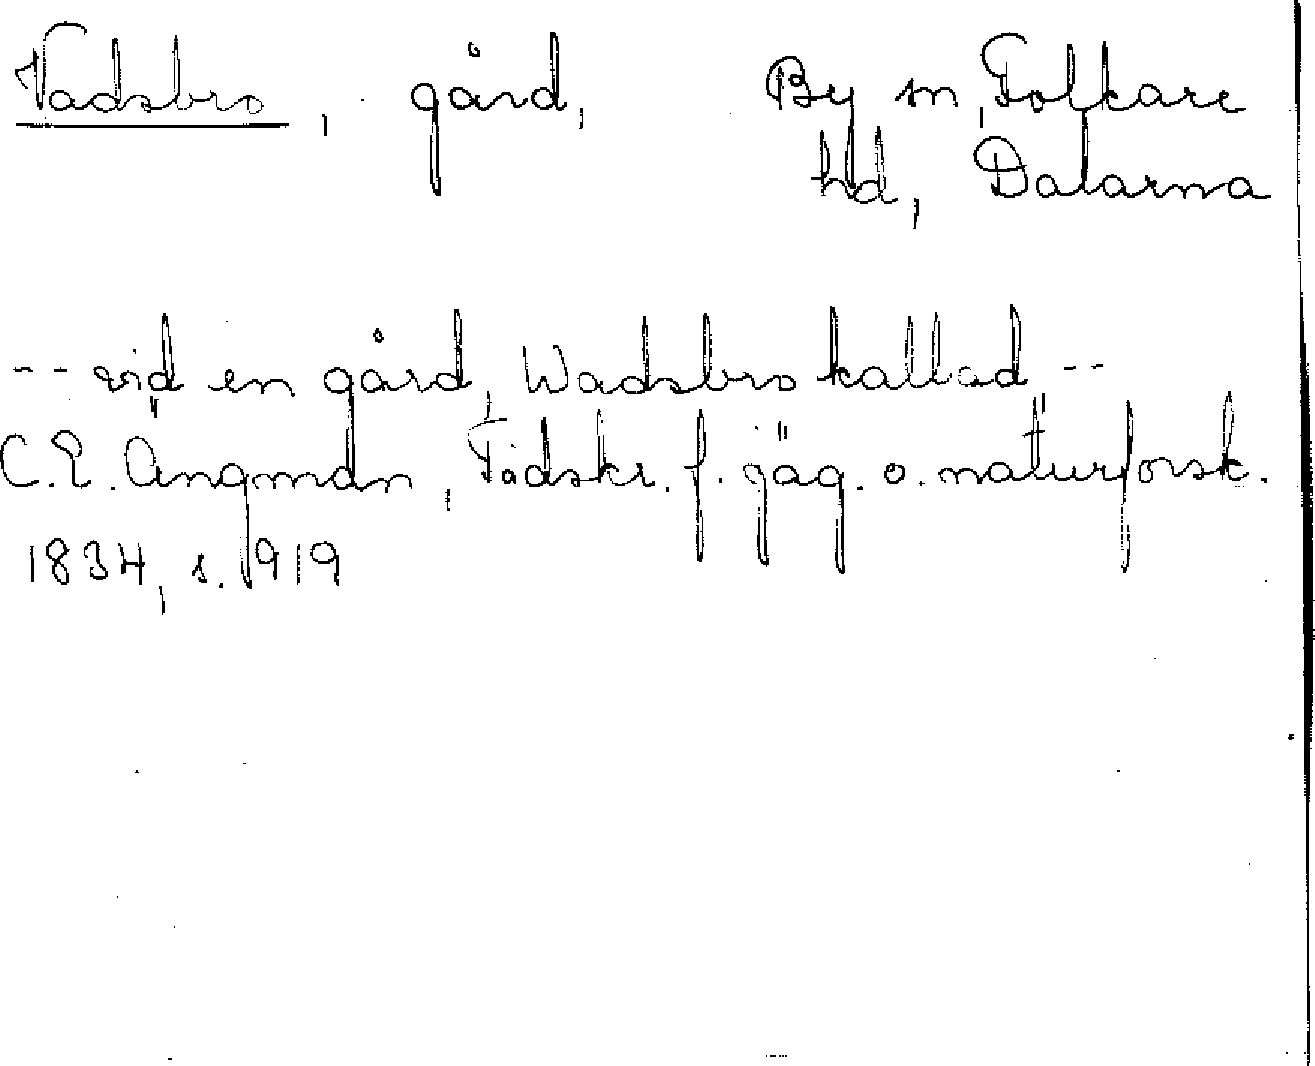 Vadsbro, gård, By sn, Folkare
hd, Dalarna
-- vid en gård, Wadsbro kallad --
C.E. Angmdn, Tidskr. f. jäg. o. naturforsk.
1834, s. 919